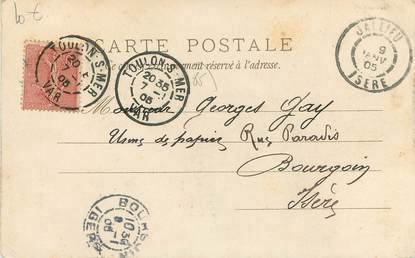 10 €
CARTE POSTALE
réservé à l'adresse.
TOULON-S-MER
20 35
7 -1
05
VAR
TOULON-S-MER
20 35
7 -1
05
VAR
JALLIEU
9
JANV
05
ISERE
Monsieur Georges Gay
Usine de papier Rue Paradis
Bourgoin
Isère
BOURGOIN
10 30
8 -1
05
ISERE